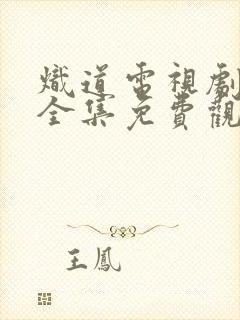 熾道電視劇
全集免費觀
王鳳